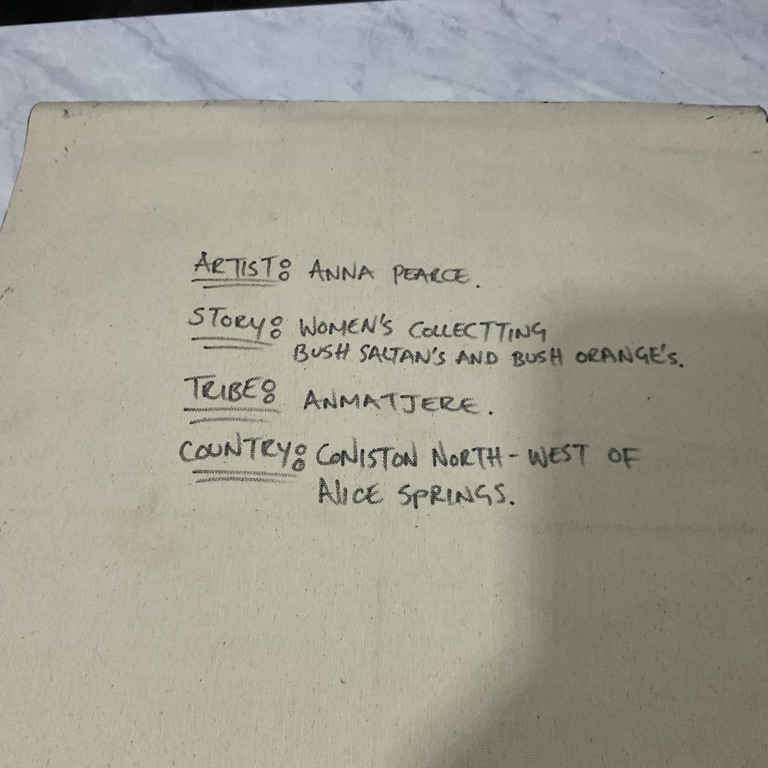 ARTIST: ANNA PEARCE.
STORY: WOMEN'S COLLECTTING
BUSH SALTAN'S AND BUSH ORANGE'S.
TRIBE: ANMATJERE.
COUNTRY: CONISTON NORTH-WEST OF
ALICE SPRINGS.